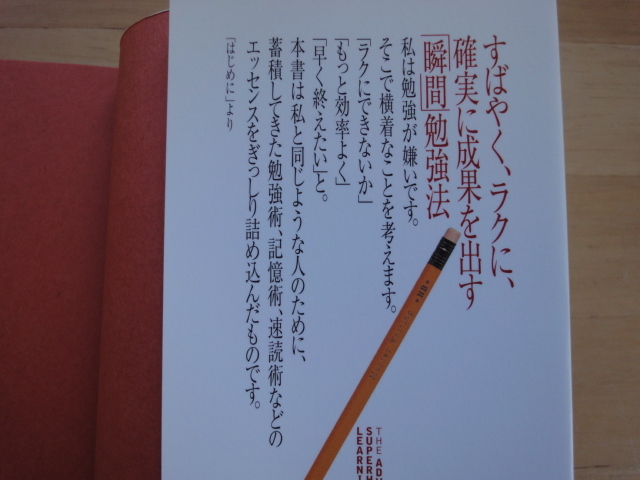 すばやく、ラクに、
確実に成果を出す
「瞬間」勉強法
私は勉強が嫌いです。
そこで横着なことを考えます。
「ラクにできないか」
「もっと効率よく」
「早く終えたい」と。
本書は私と同じような人のために、
蓄積してきた勉強術、記憶術、速読術などの
エッセンスをぎっしり詰め込んだものです。
「はじめに」より
THE ADV
SUPERH
LEARNI